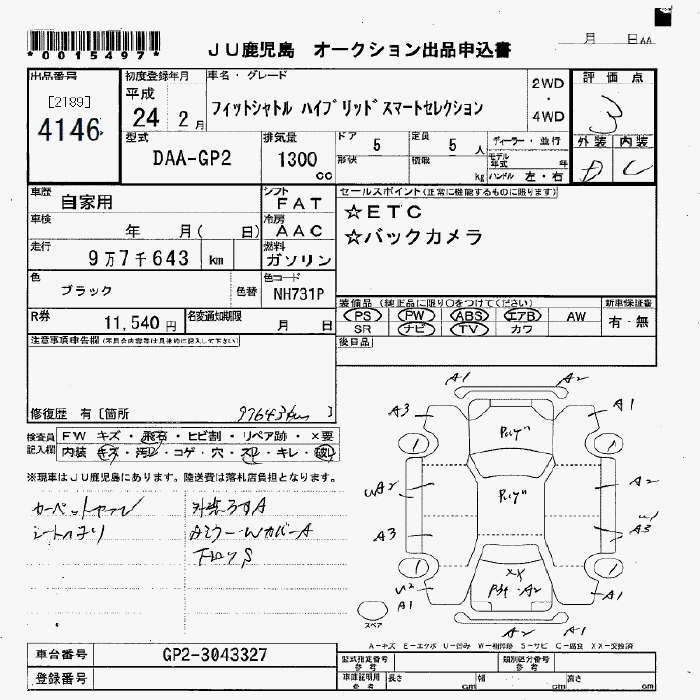 *0015497*
JU鹿児島 オークション出品申込書
月 日AA
出品番号
[2189]
4146
初度登録年月
平成
24 2月
車名・グレード
フィットシャトル ハイブリッドスマートセレクション
2WD
・
4WD
評価点
3
外装 内装
D C
型式
DAA-GP2
排気量
1300
cc
ドア 5
形状
定員 5 人
積載 kg
ディーラー・並行
モデル年式 年
ハンドル 左・右
車歴 自家用
シフト FAT
車検 年 月( 日)
冷房 AAC
走行 9万7千643 km
燃料 ガソリン
色 ブラック 色替
色コード NH731P
R券 11,540円
名変通知期限 月 日
セールスポイント(正常に機能するものに限ります)
☆ETC
☆バックカメラ
装備品(純正品に限り○をつけてください)
新車保証書
PS PW ABS エアB AW
SR ナビ TV カワ
有・無
後日品
注意事項申告欄(不具合内容等は具体的に記入して下さい)
修復歴 有[箇所 97643km ]
検査員記入欄
FW キズ・飛石・ヒビ割・リペア跡・×要
内装 キズ・汚レ・コゲ・穴・スレ・キレ・破レ
※現車はJU鹿児島にあります。陸送費は落札店負担となります。
外装うすA
A1 A2
A3 A1
A2
A3 A3
A1 A1
A2 A1
XX
スペア
A-キズ E-エクボ U-凹み W-補修跡 S-サビ C-腐食 XX-交換済
車台番号 GP2-3043327
登録番号
型式指定番号 参考
類別区分番号 参考
車庫証明用 参考
長さ cm
幅 cm
高さ cm